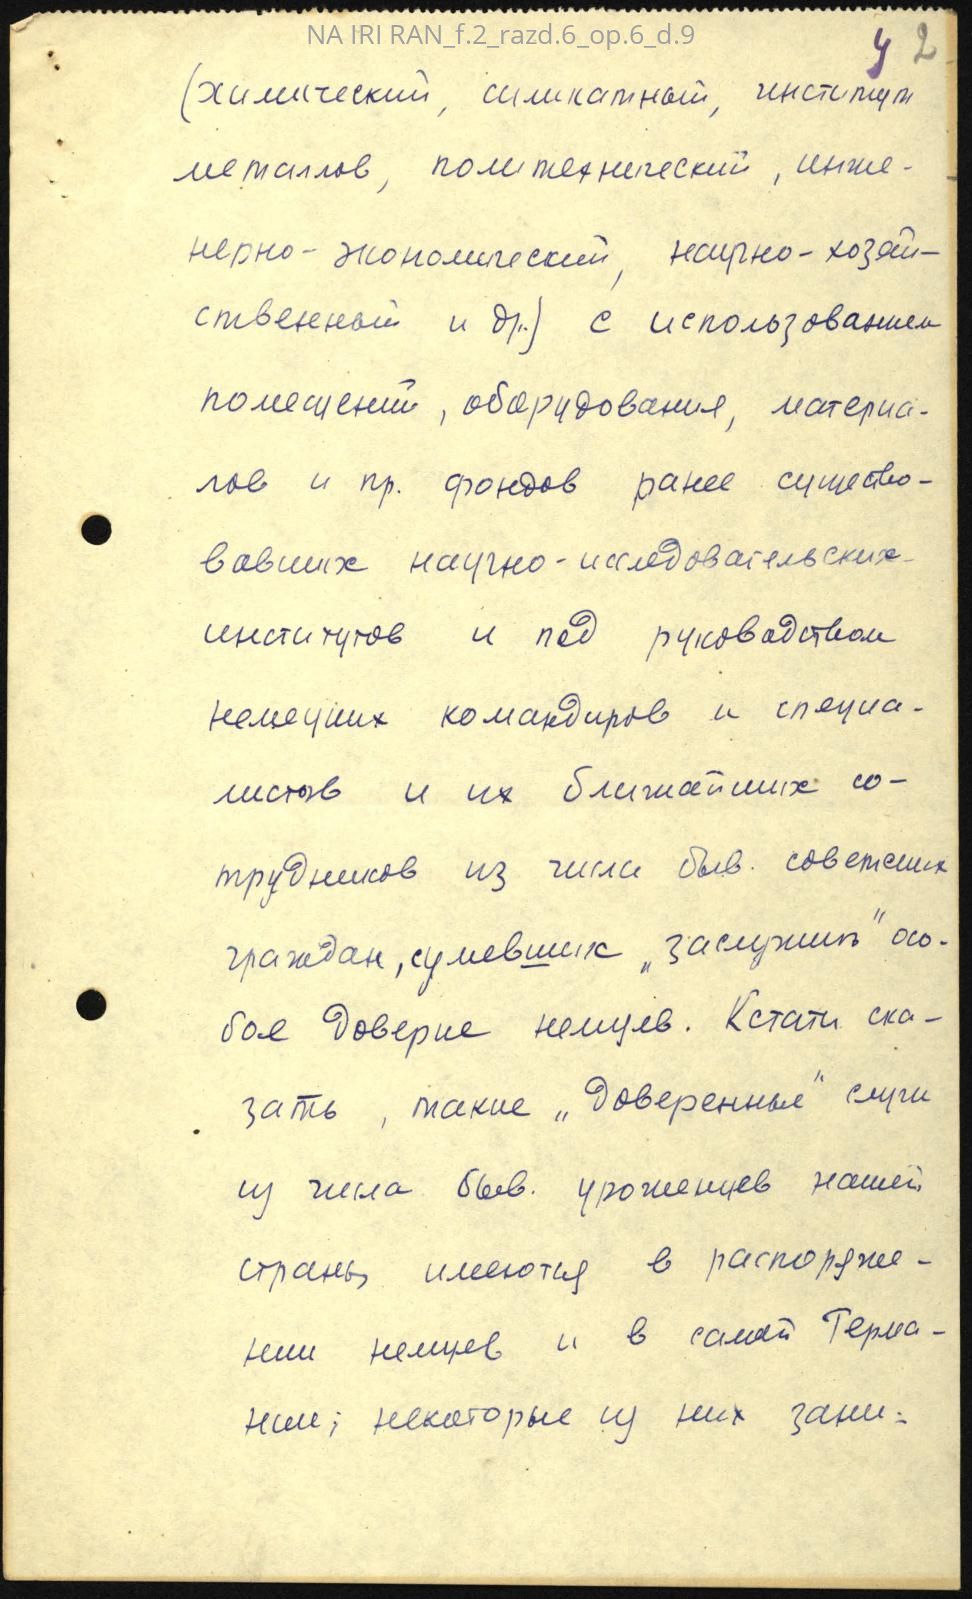 NA IRI RAN_f.2_razd.6_op.6_d.9
2
(химический, силикатный, институт
металлов, политехнический, инже-
нерно-экономический, научно-хозяй-
ственный и др.) с использованием
помещений, оборудования, материа-
лов и пр. фондов ранее существо-
вавших научно-исследовательских
институтов и под руководством
немецких командиров и специа-
листов и их ближайших со-
трудников из числа быв. советских
граждан, сумевших „заслужить" осо-
бое доверие немцев. Кстати ска-
зать, такие „доверенные" слуги
из числа быв. уроженцев нашей
страны имеются в распоряже-
нии немцев и в самой Герма-
нии; некоторые из них зани-